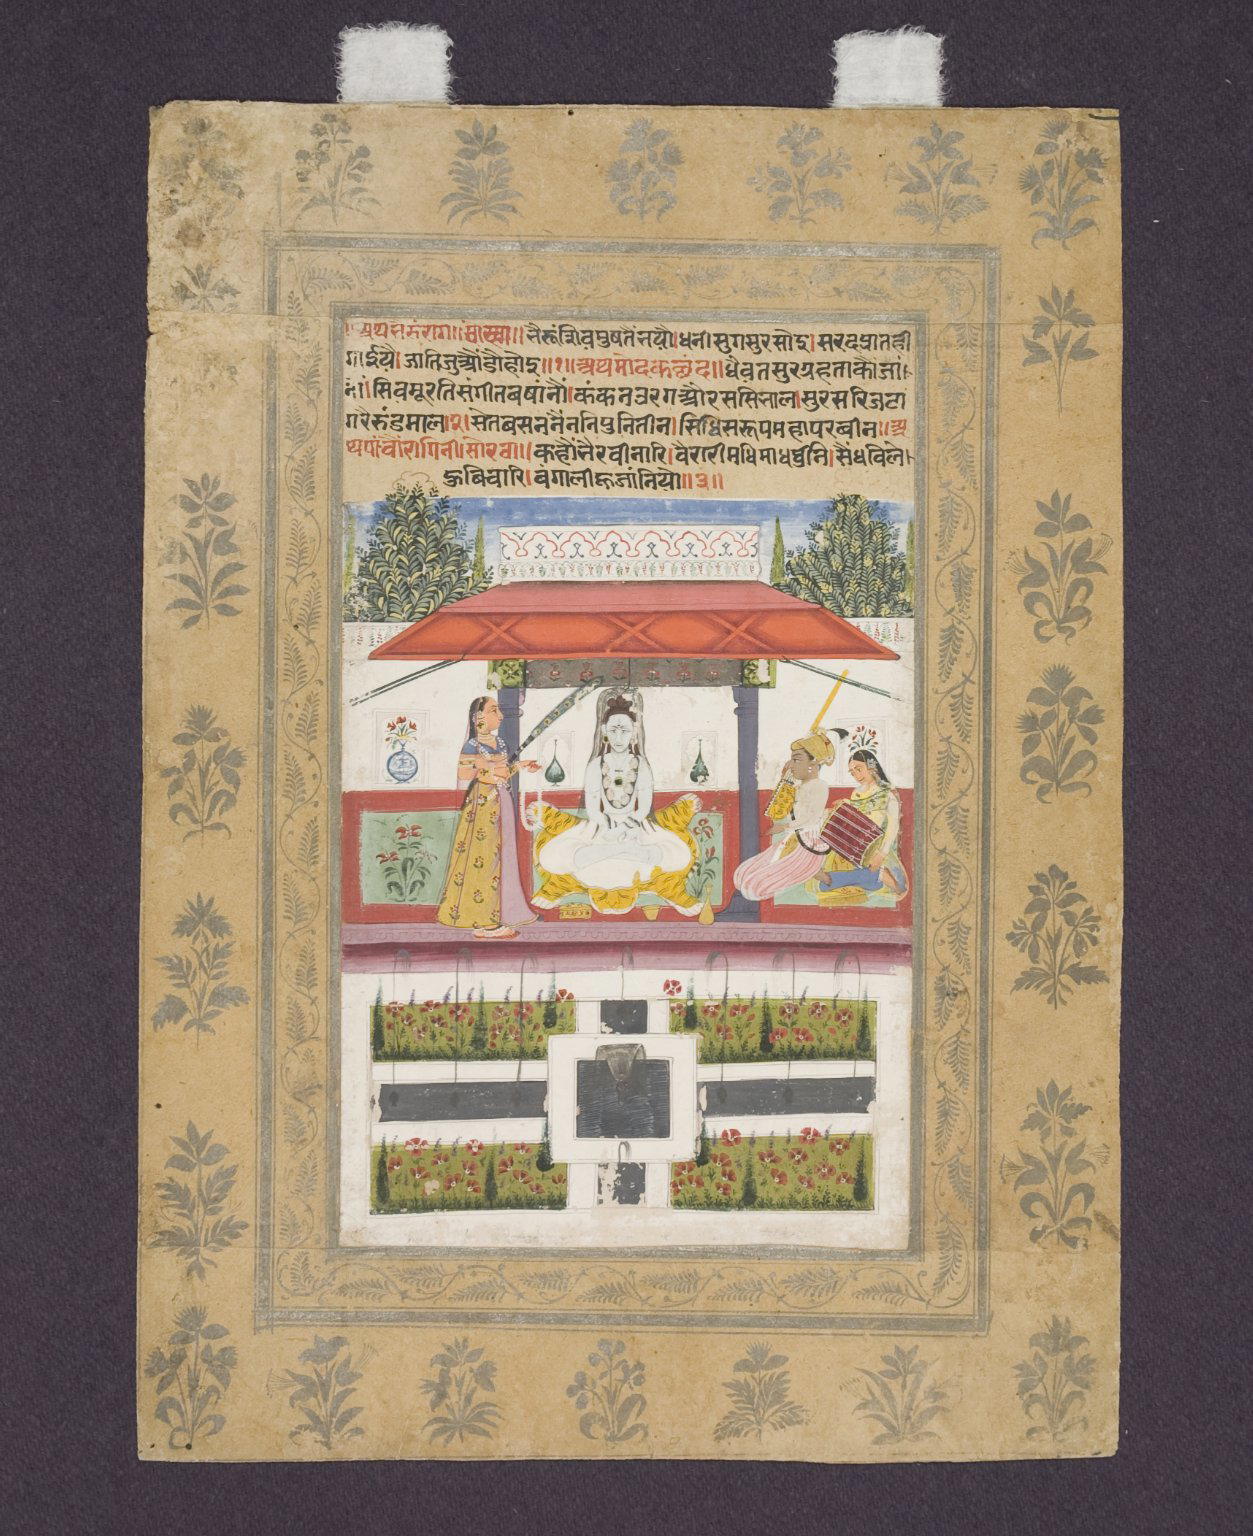 अथ भैरुं राग॥ सोरठा॥ भैरूं शिव वपुष तैं भयौ। धनी सुग सुर सोइ। सरद प्रात ही
गाईयै। जाति जु औंडौ होइ॥१॥ अथ मोदक छंद॥ धैवत सुर ग्रह ताकौ जां
नां। सिव मूरति संगीत बषांनौ। कंकन उरग औ र ससि भाल। सुरसरि जटा
गरै रुंड माल।२। सेत बसन नैंन निपुनि तीन। सिधि सरूप महा परबीन॥ अ
थ पांचौं रागिनी। सोरठा॥ कहौं भैरवी नारि। वैरारी मधिमाधवी सुनि। सैंधवि लेऊ
बिचारि। बंगाली हू जांनियो॥३॥